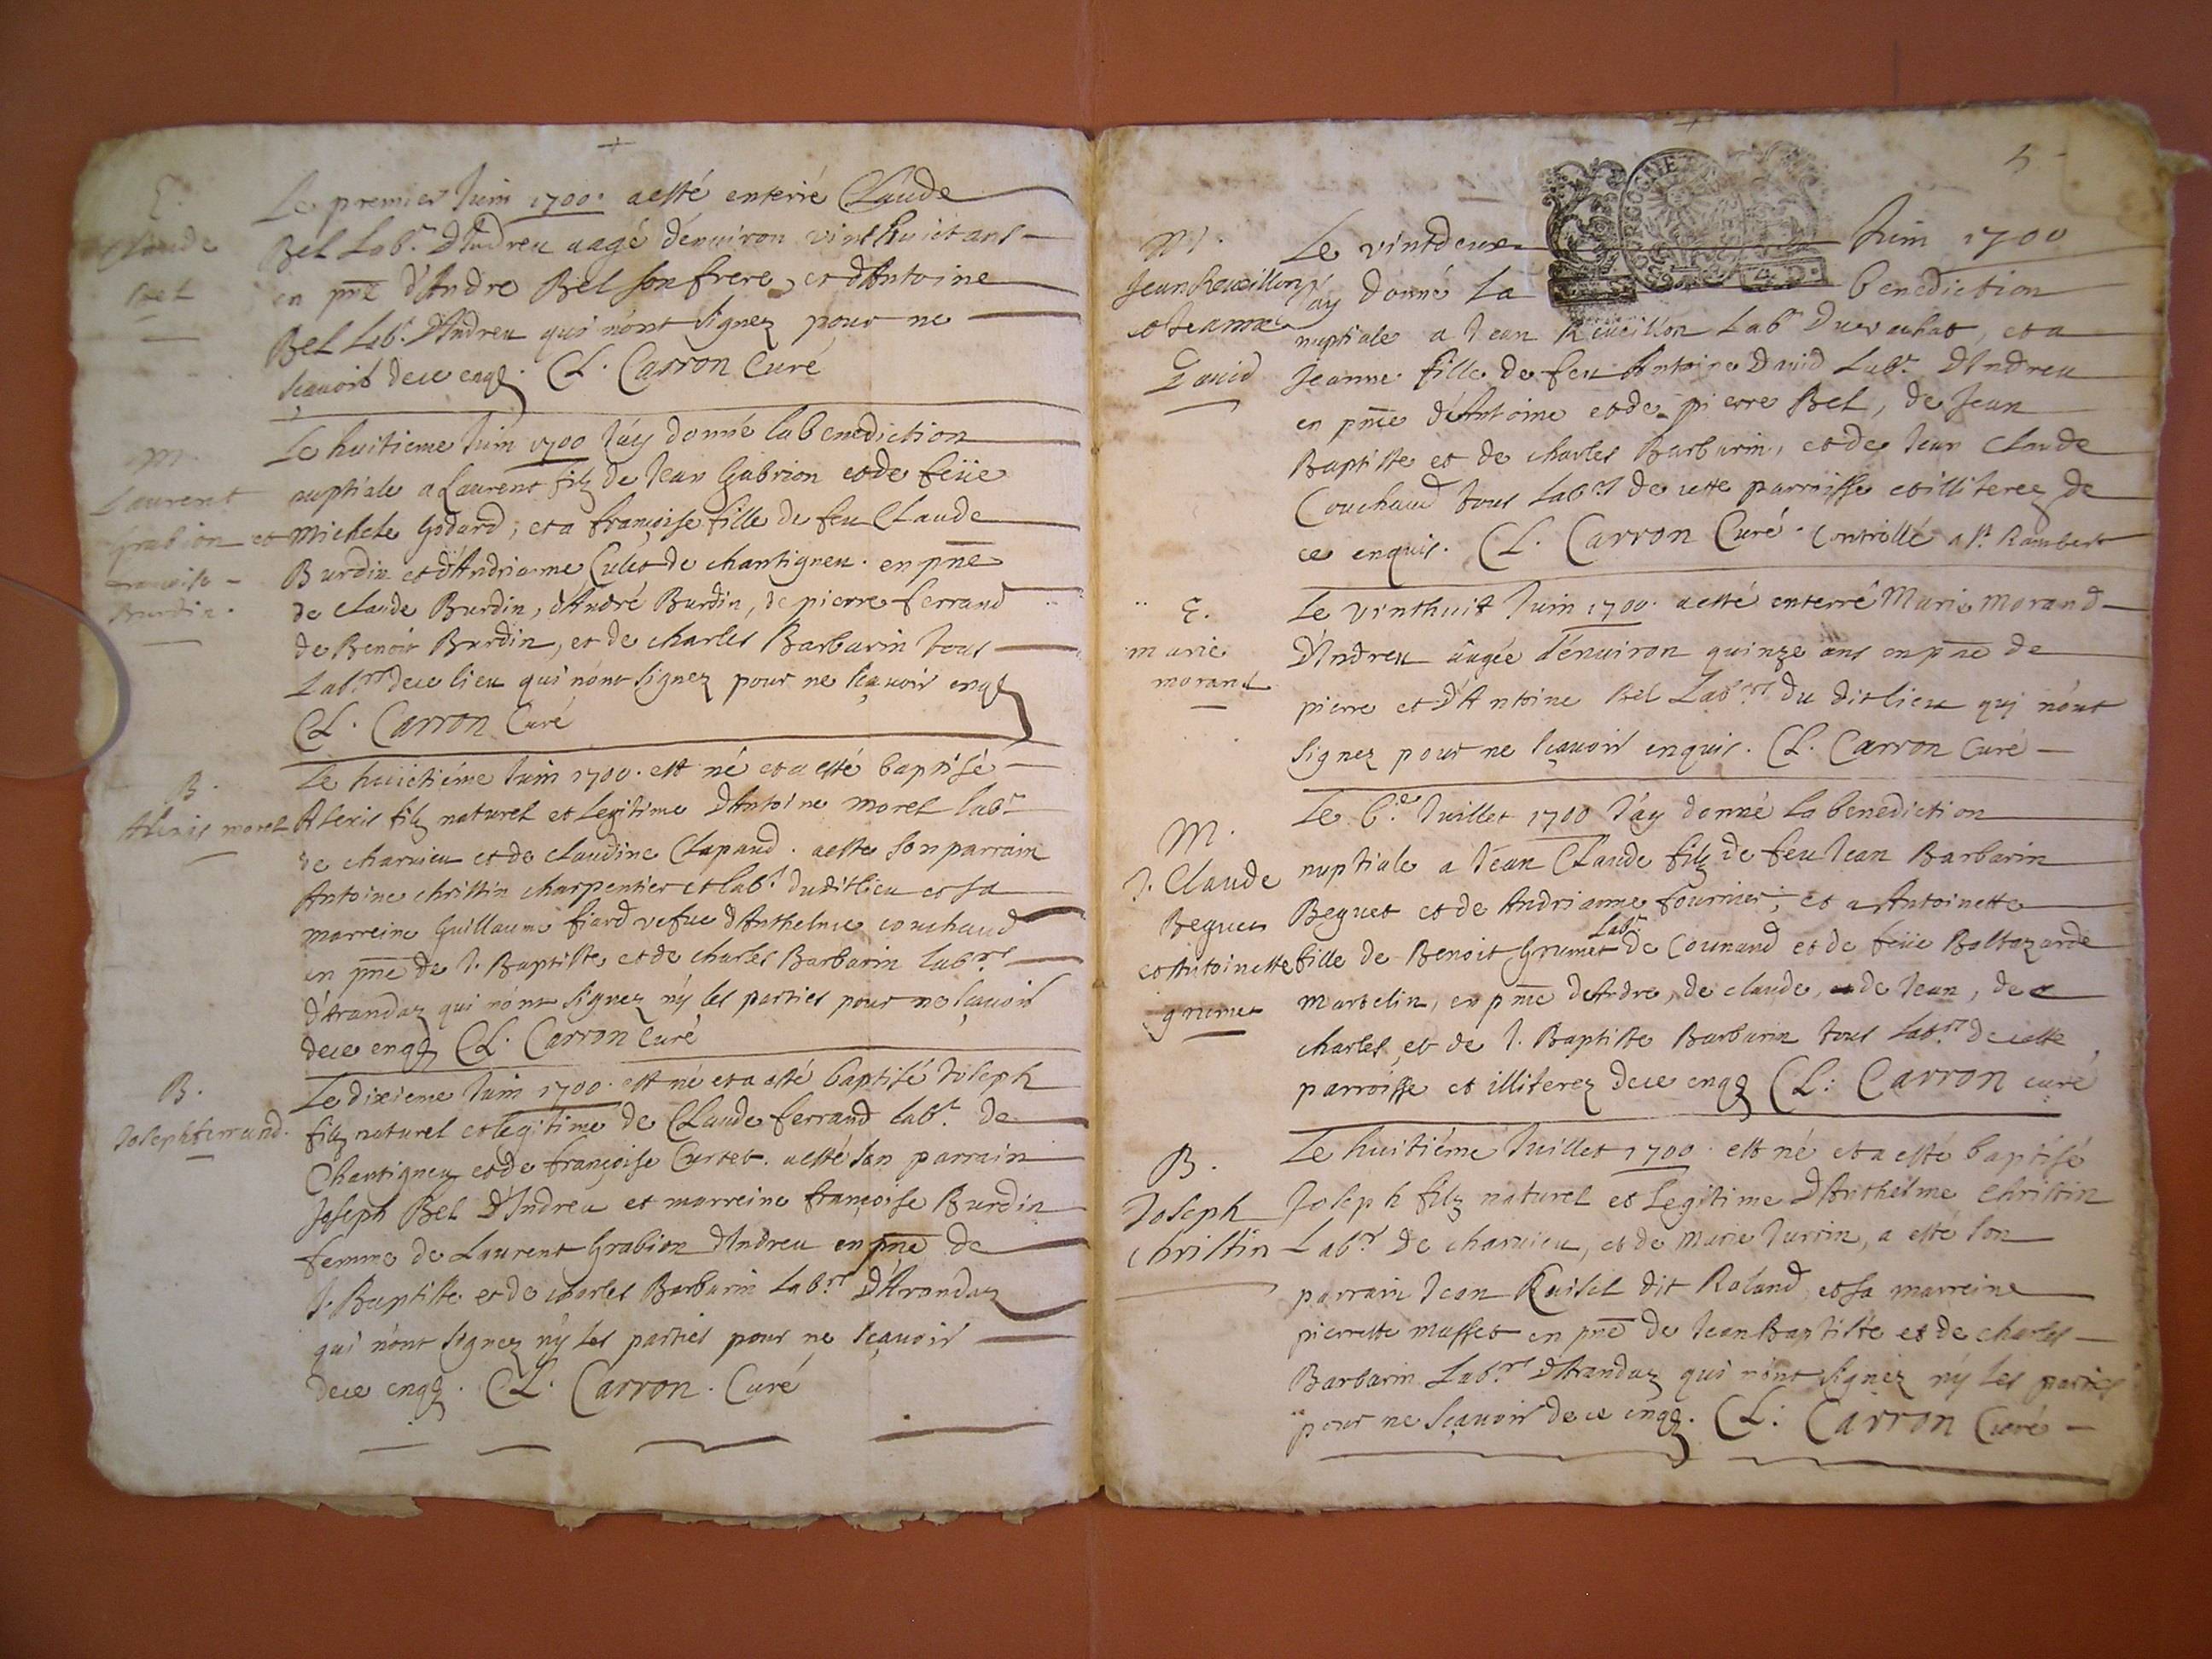 E.
Claude
Bel
Le premier Juin 1700. a esté enterré Claude
Bel Lab.r d'Indreu aagé d'environ vint huict ans
en pnce d'Andre Bel son frere, et d'Antoine
Bel Lab.r d'Indreu qui n'ont signez pour ne
sçavoir de ce enqs. CL. Carron Curé
M.
Laurent
Grabion et
françoise
Burdin.
Le huitieme Juin 1700 J'ay donné la benediction
nuptiale a Laurent filz de Jean Gabrion et de feüe
Michele Godard, et a françoise fille de feu Claude
Burdin et d'Andrianne Culet de chantigneu. en pnce
de claude Burdin, d'André Burdin, de pierre ferrand
de Benoit Burdin, et de charles Barbarin tous
Lab.rs de ce lieu qui n'ont signez pour ne sçavoir enqs
CL. Carron Curé
B.
Alexis morel
Le huictiéme Juin 1700. est né et a esté baptisé
Alexis filz naturel et legitime d'Antoine morel lab.r
de charvieu et de claudine Clapaud. a este son parrain
Antoine christin charpentier et lab.r du dit lieu et sa
marreine Guillaume fiard vefue d'Anthelme couchaud
en pnce de J. Baptiste et de charles Barbarin lab.rs
d'Arandaz qui n'ont signez n'y les parties pour ne sçavoir
de ce enqs CL. Carron Curé
B.
Joseph ferrand.
Le dixieme Juin 1700. est né et a esté baptisé Joseph
filz naturel et legitime de Claude ferrand lab.r de
Chantigneu et de françoise Curtet. a esté son parrain
Joseph Bel d'Indreu et marreine françoise Burdin
femme de Laurent Grabion d'Indreu en pnce de
J. Baptiste et de charles Barbarin lab.rs d'Arandaz
qui n'ont signez n'y les parties pour ne sçavoir
de ce enqs. CL. Carron. Curé
5
M.
Jean Reveillon
et Jeanne
David
Le vintdeux Juin 1700
J'ay donné la benediction
nuptiale a Jean Reveillon Lab.r et a
Jeanne fille de feu Antoine David Lab.r d'Indreu
en pnce d'Antoine et de pierre Bel, de Jean
Baptiste et de charles Barbarin, et de Jean Claude
Couchaud tous lab.rs de cette parroisse et illiterez de
ce enquis. CL. Carron Curé. Controllé a St. Rambert
E.
marie
morand
Le vinthuit Juin 1700. a esté enterré Marie Morand
d'Indreu âagée d'environ quinze ans en pnce de
pierre et d'Antoine Bel Lab.rs du dit lieu qui n'ont
signez pour ne sçavoir enquis. CL. Carron Curé
M.
J. Claude
Beguet
et Antoinette
grumet
Le 6.e Juillet 1700 J'ay donné la benediction
nuptiale a Jean Claude filz de feu Jean Barbarin
Beguet et de Andrianne fournier; et a Antoinette
fille de Benoit Grumet Lab.r de Counand et de feüe Baltazarde
Martelin, en pnce de Andre, de claude, de Jean, de
charles, et de J. Baptiste Barbarin tous lab.rs de cette
parroisse et illiterez de ce enqs CL: Carron curé
B.
Joseph
christin
Le huitiéme Juillet 1700. est né et a esté baptisé
Joseph filz naturel et legitime d'Anthelme christin
Lab.r de charvieu, et de Marie Jurrin, a esté son
parrain Jean dit Roland, et sa marreine
pierrette musset en pnce de Jean Baptiste et de charles
Barbarin Lab.rs d'Arandaz qui n'ont signez n'y les parties
pour ne sçavoir de ce enqs. CL: Carron Curé